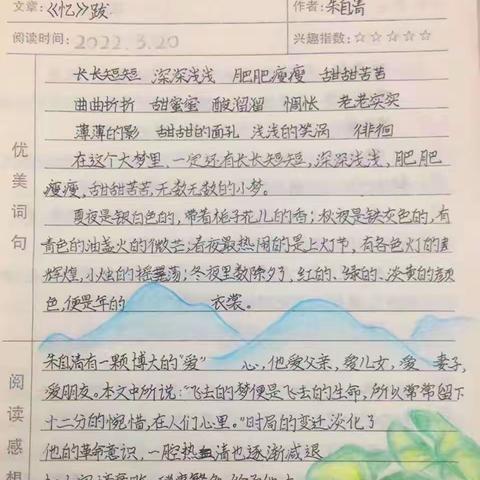 文章：《忆》跋
作者：朱自清
阅读时间：2022.3.20
兴趣指数：☆☆☆☆☆
优美词句
长长短短 深深浅浅 肥肥瘦瘦 甜甜苦苦
曲曲折折 甜蜜蜜 酸溜溜 惆怅 老老实实
薄薄的影 甜甜的面孔 浅浅的笑涡 徘徊
在这个大梦里，一定还有长长短短，深深浅浅，肥肥
瘦瘦，甜甜苦苦，无数无数的小梦。
夏夜是银白色的，带着栀子花儿的香；秋夜是铁灰色的，有
青色的油盏火的微芒；春夜最热闹的是上灯节，有各色灯的
辉煌，小烛的摇荡；冬夜里数除夕了，红的、绿的、淡黄的颜
色，便是年的 衣裳。
阅读感想
朱自清有一颗博大的“爱” 心，他爱父亲，爱儿女，爱 妻子，
爱朋友。本文中所说：“飞去的梦便是飞去的生命，所以常常留下
十二分的惋惜，在人们心里。”时局的变迁淡化了
他的革命意识，一腔热血清也逐渐减退